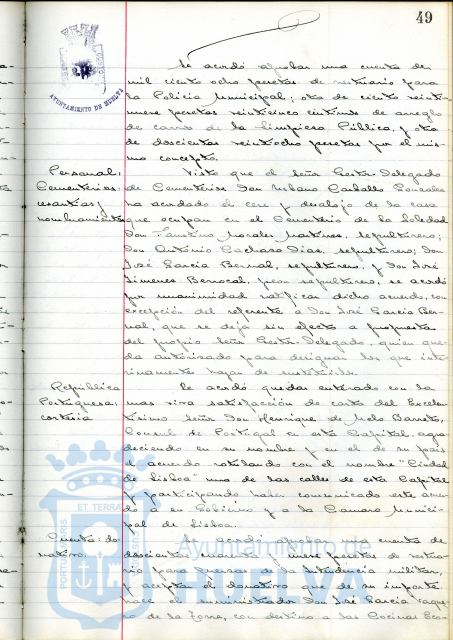 49
AYUNTAMIENTO DE HUELVA
Se acordó aprobar una cuenta de
mil ciento ocho pesetas de vestuario para
la Policía Municipal; otra de ciento veinti-
nueve pesetas veinticinco céntimos de arreglo
de carros de la Limpieza Pública, y otra
de doscientas veintiocho pesetas por el mis-
mo concepto.
Personal;
Cementerios:
cesantías y
nombramientos
Visto que el Señor Gestor Delegado
de Cementerios Don Urbano Carballo Gonzales
ha acordado el cese y desalojo de la casa
que ocupan en el Cementerio de la Soledad
Don Faustino Morales Martines, sepulturero;
Don Antonio Cachaso Dias, sepulturero; Don
José García Bernal, sepulturero, y Don José
Jimenes Berrocal, peon sepulturero, se acordó
por unanimidad ratificar dicho acuerdo, con
excepción del referente a Don José García Ber-
nal, que se deja sin efecto a propuesta
del propio Señor Gestor Delegado, quien que-
da autorizado para designar los que inte-
rinamente hayan de sustituirle.
República
Portuguesa:
cortesía
Se acordó quedar enterado con la
mas viva satisfacción de carta del Excelen-
tísimo Señor Don Henrique de Melo Barreto,
Consul de Portugal en esta Capital, agra-
deciendo en su nombre y en el de su pais
el acuerdo rotulando con el nombre "Ciudad
de Lisboa" una de las calles de esta Capital
y participando haber comunicado este acuer-
do a su Gobierno y a la Camara Munici-
pal de Lisboa.
Cuenta: do-
nativo.
Se acordó aprobar una cuenta de
doscientas cuarenta y nueve pesetas de vestua-
rio para fuerzas de la Intendencia militar,
y acepta el donativo que de su importe
hace el suministrador Don José García Vaque-
ro de la Torre, con destino a las Cocinas Eco-
PORTUS MARIS ET TERRAE
Ayuntamiento de
HUELVA